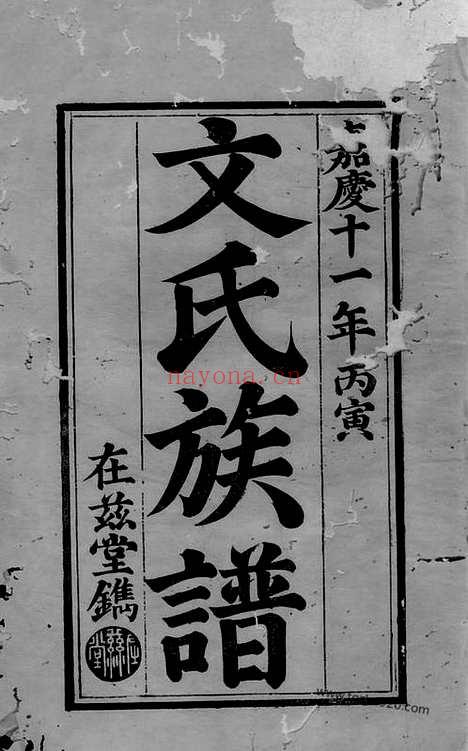 嘉慶十一年丙寅
文氏族譜
在茲堂鐫
在茲堂
nayona.cn